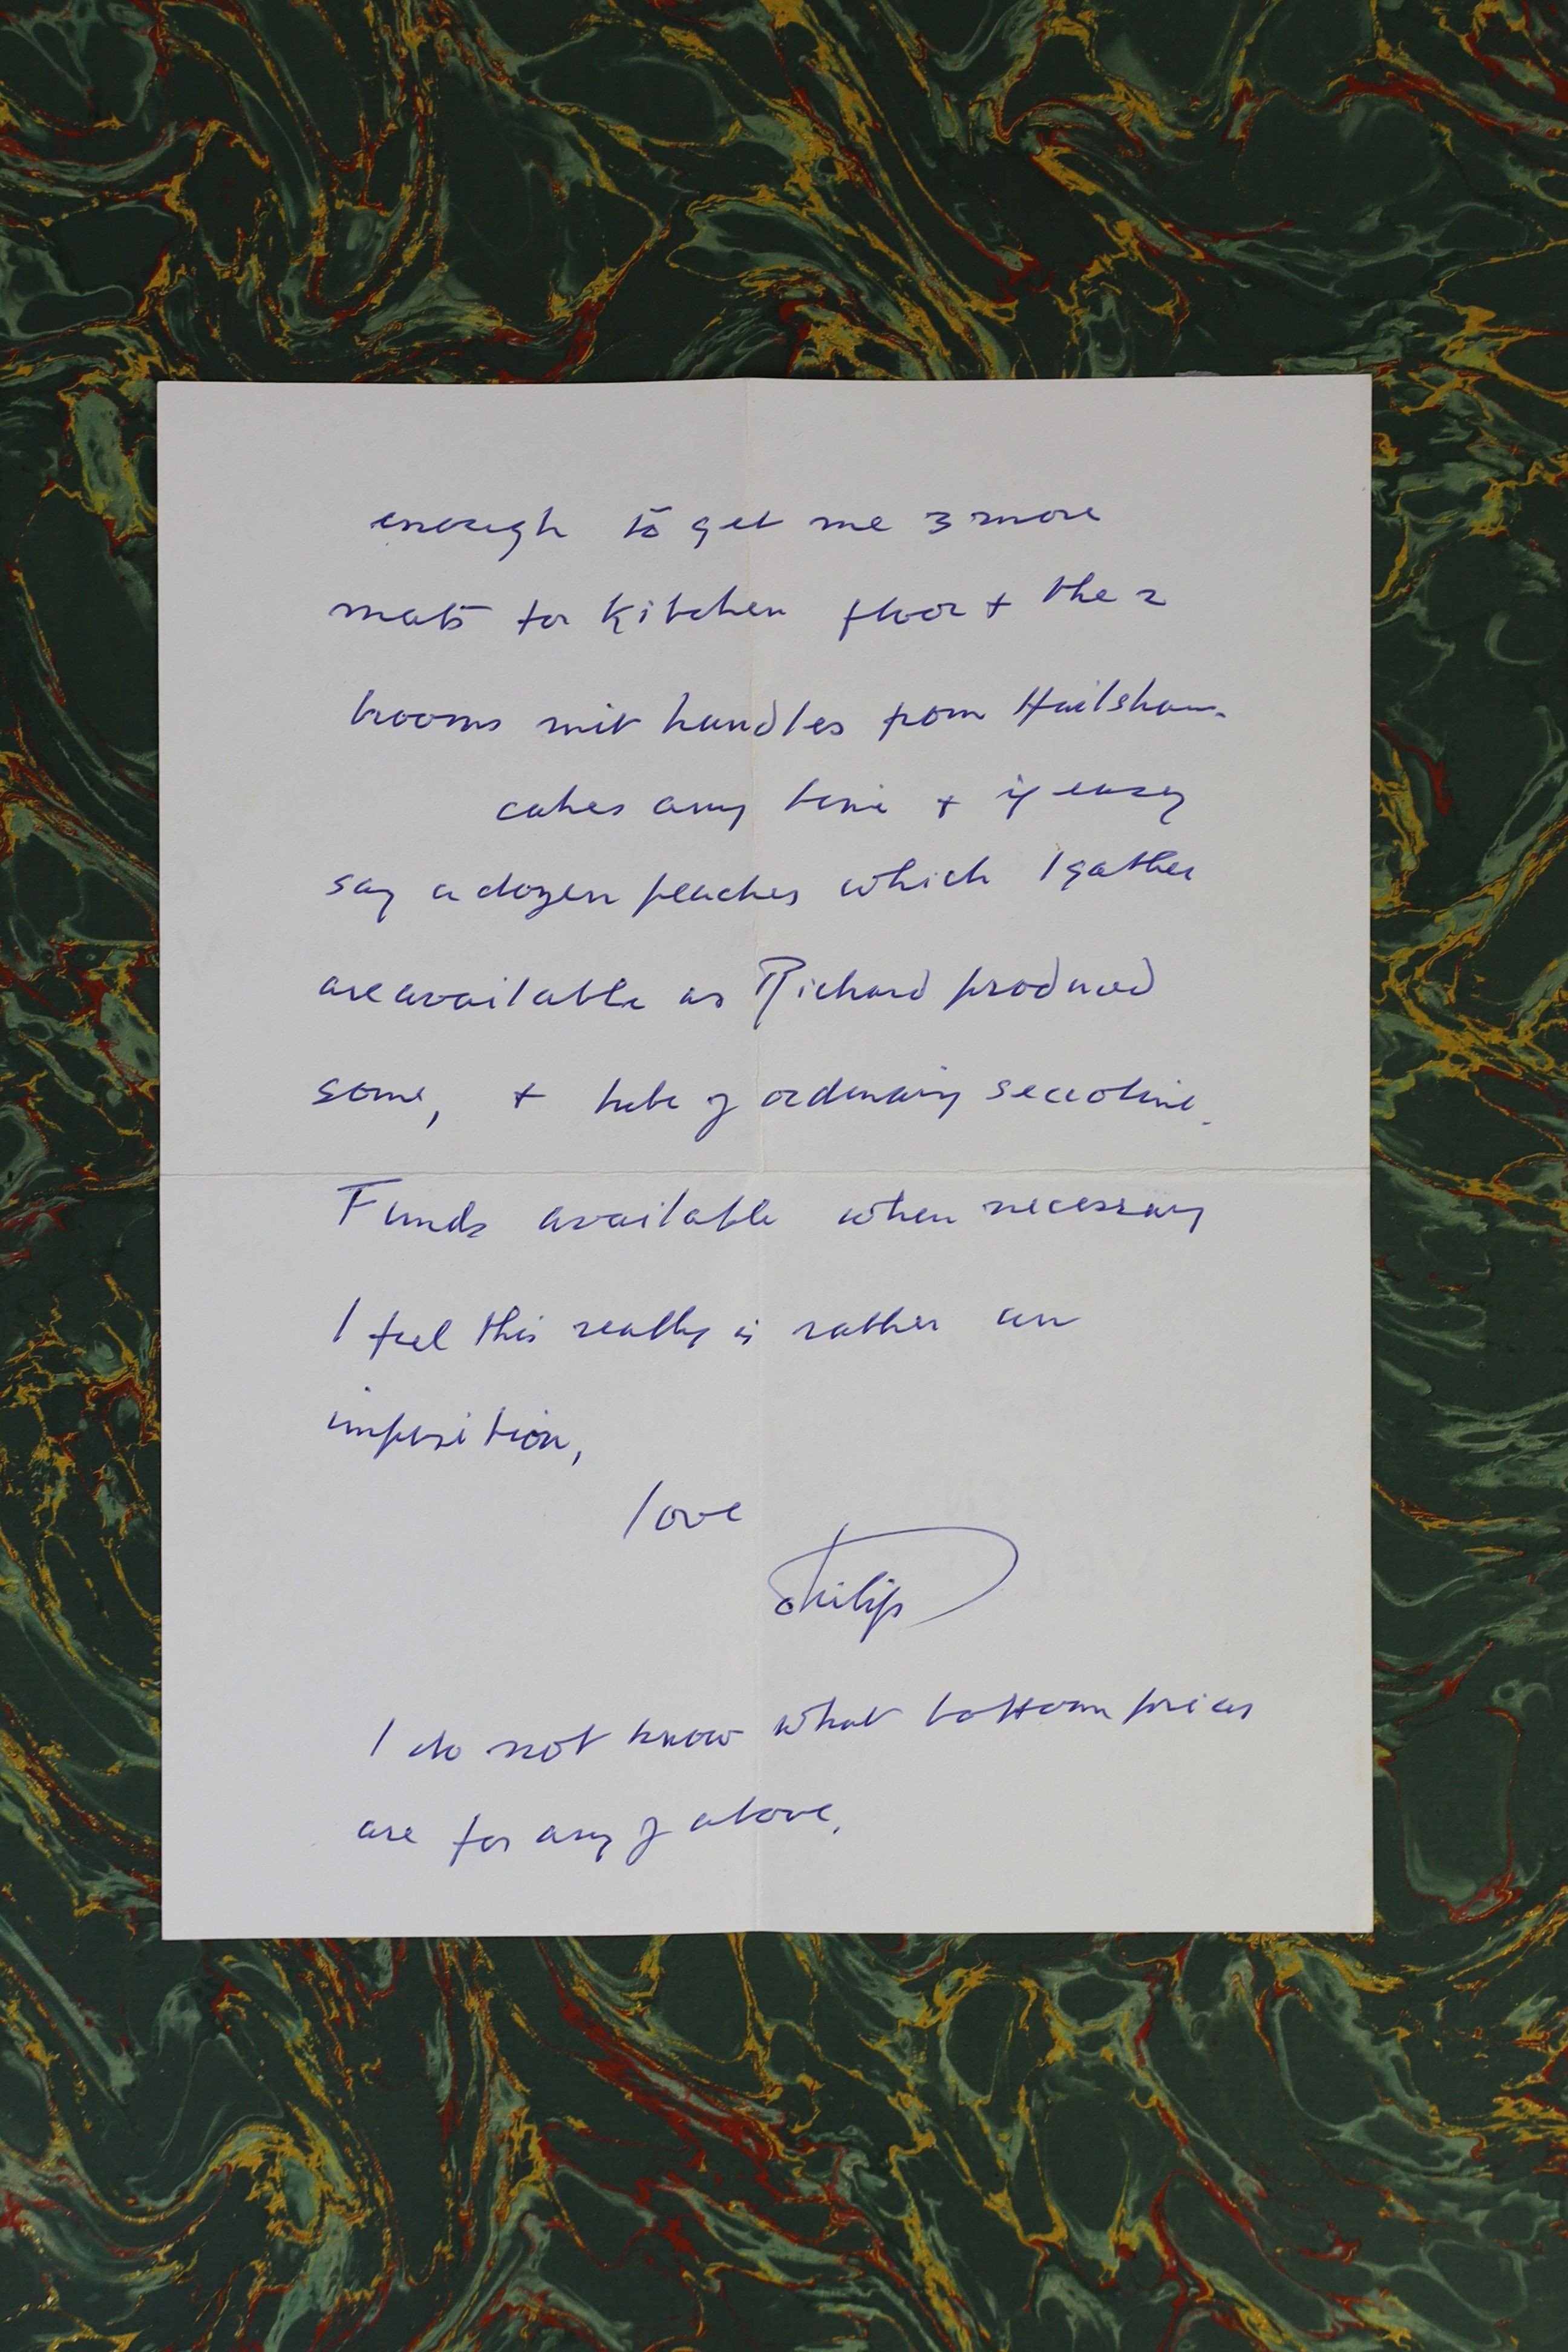 enough to get me 3 more
mats for kitchen floor + the 2
brooms mit handles from Hailsham.
cakes any time + if easy
say a dozen peaches which I gather
are available as Richard produced
some, + tube of ordinary seccotine.
Funds available when necessary
I feel this really is rather an
imposition,
love
Philip
I do not know what bottom prices
are for any of above.